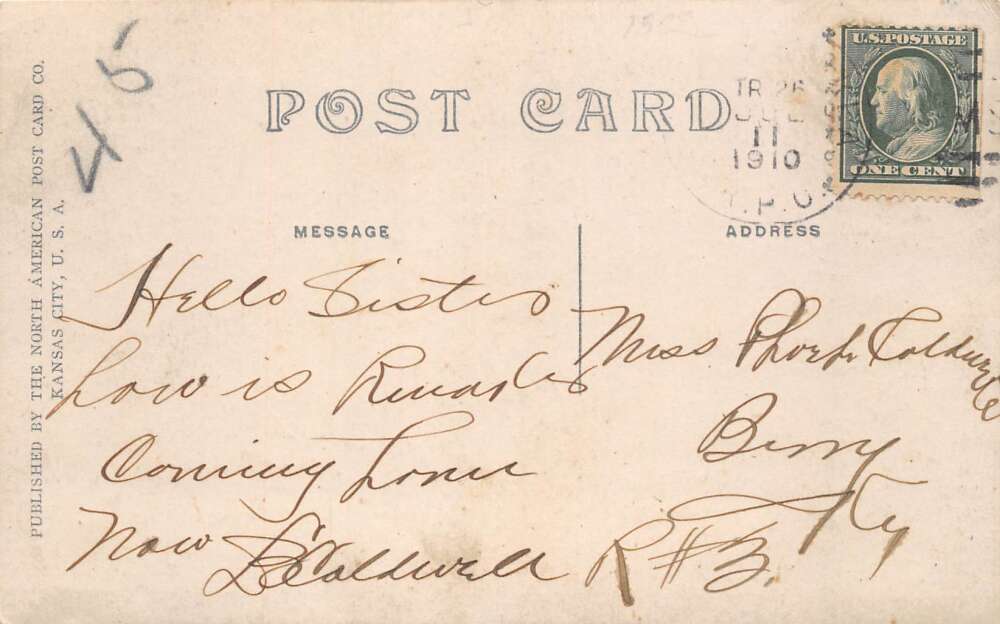 PUBLISHED BY THE NORTH AMERICAN POST CARD CO.
KANSAS CITY, U. S. A.
45
POST CARD
TR 26
JUL
11
1910
R.P.O.
U.S. POSTAGE
ONE CENT
MESSAGE
Hello Sister
how is
Coming home
Now
L C Caldwell
ADDRESS
Miss Phoebe Caldwell
Berry
Ky
R # 3.